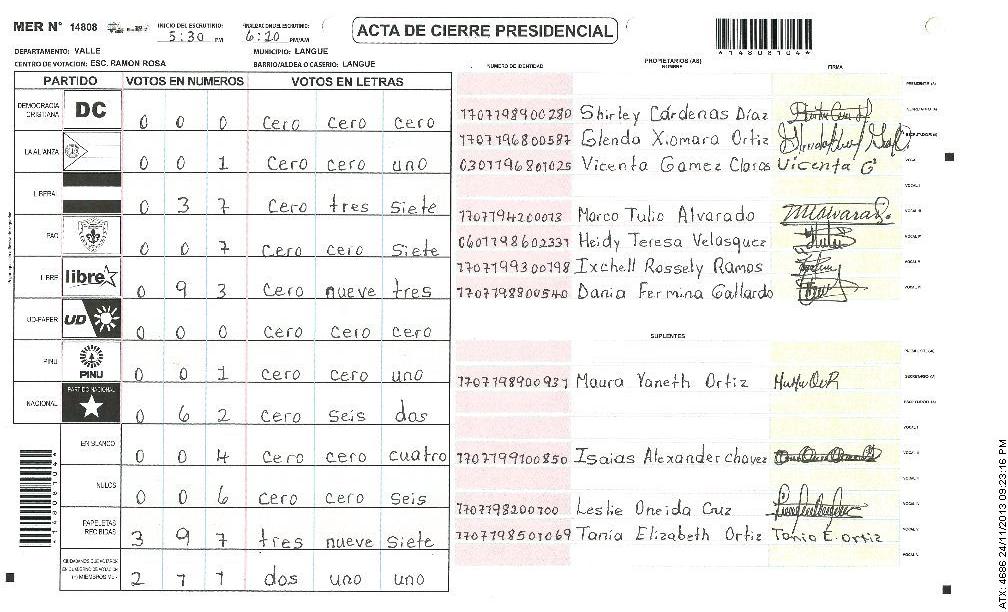 MER N° 14808
INICIO DEL ESCRUTINIO: 5:30 PM
FINALIZACION DEL ESCRUTINIO: 6:20 PM/AM
ACTA DE CIERRE PRESIDENCIAL
*14808104*
DEPARTAMENTO: VALLE
MUNICIPIO: LANGUE
CENTRO DE VOTACION: ESC. RAMON ROSA
BARRIO/ALDEA O CASERIO: LANGUE
PARTIDO VOTOS EN NUMEROS VOTOS EN LETRAS
DEMOCRACIA CRISTIANA DC 0 0 0 cero cero cero
LA ALIANZA 0 0 1 Cero cero uno
LIBERAL 0 3 7 Cero tres siete
PAC 0 0 7 Cero cero Siete
LIBRE libre 0 9 3 Cero nueve tres
UD-FAPER UD 0 0 0 cero Cero cero
PINU PINU 0 0 1 cero cero uno
NACIONAL PARTIDO NACIONAL 0 6 2 Cero seis dos
EN BLANCO 0 0 4 cero cero cuatro
NULOS 0 0 6 cero cero seis
PAPELETAS RECIBIDAS 3 9 7 tres nueve siete
2 1 1 dos uno uno
NUMERO DE IDENTIDAD
PROPIETARIOS (AS)
NOMBRE
FIRMA
1707198900280 Shirley Cárdenas Díaz
1707196800587 Glenda Xiomara Ortiz
0301196801025 Vicenta Gamez Claros Vicenta G
Marco Tulio Alvarado
0601198602331 Heidy Teresa Velasquez
1707199300798 Ixchell Rossely Ramos
1707198800540 Dania Fermina Gallardo
SUPLENTES
1707198900931 Maura Yaneth Ortiz
1707199100850 Isaias Alexander chavez
Leslie Oneida Cruz
1707198501069 Tania Elizabeth Ortiz Tania E. ortiz
*14808104*
ATX: 4686 24/11/2013 09:23:16 PM